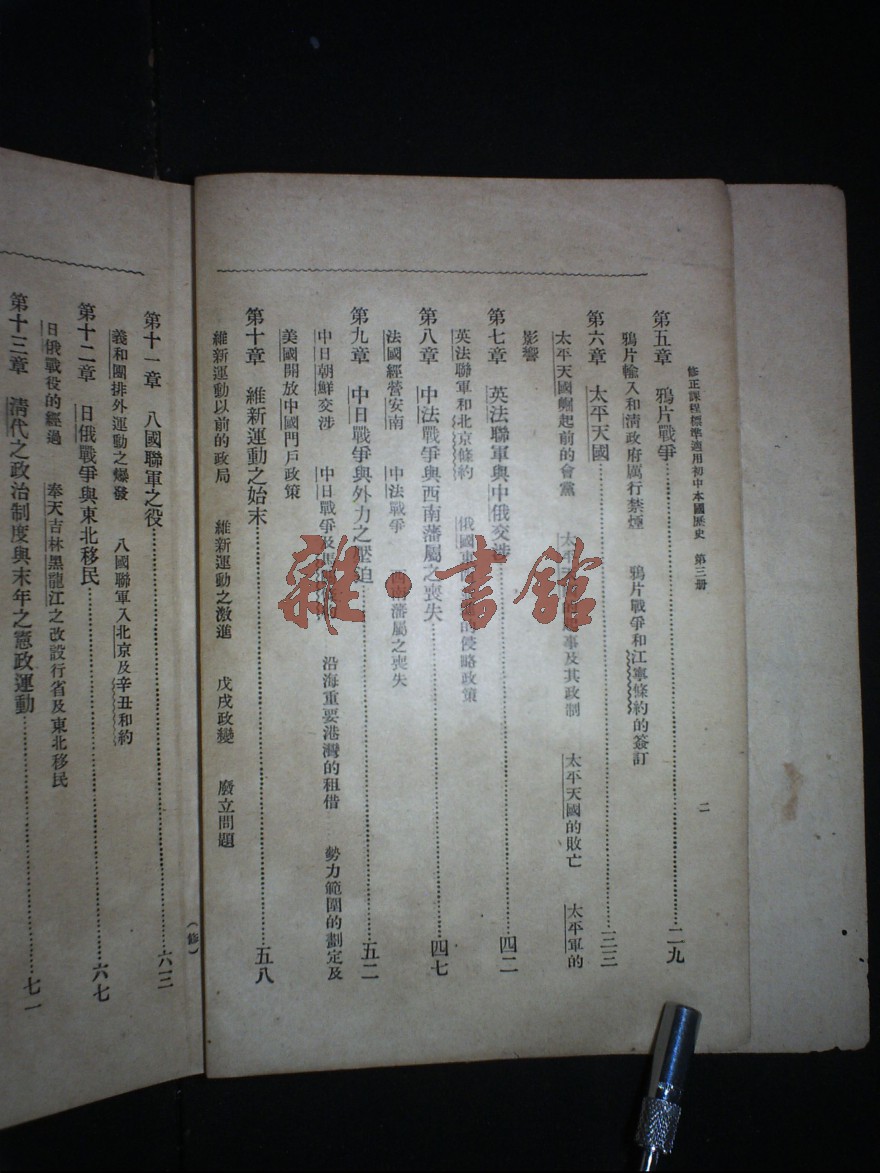 修正課程標準適用初中本國歷史 第三册
二
第五章 鴉片戰爭 二九
鴉片輸入和淸政府厲行禁煙 鴉片戰爭和江寧條約的簽訂
第六章 太平天國 三三
太平天國崛起前的會黨 太平 事及其政制 太平天國的敗亡 太平軍的
影響
第七章 英法聯軍與中俄交涉 四二
英法聯軍和北京條約 俄國東 的侵略政策
第八章 中法戰爭與西南藩屬之喪失 四七
法國經營安南 中法戰爭 西南藩屬之喪失
第九章 中日戰爭與外力之壓迫 五二
中日朝鮮交涉 中日戰爭及馬 沿海重要港灣的租借 勢力範圍的劃定及
美國開放中國門戶政策
第十章 維新運動之始末 五八
維新運動以前的政局 維新運動之激進 戊戌政變 廢立問題
(修)
第十一章 八國聯軍之役 六三
義和團排外運動之爆發 八國聯軍入北京及辛丑和約
第十二章 日俄戰爭與東北移民 六七
日俄戰役的經過 奉天吉林黑龍江之改設行省及東北移民
第十三章 淸代之政治制度與末年之憲政運動 七一
雜·書館